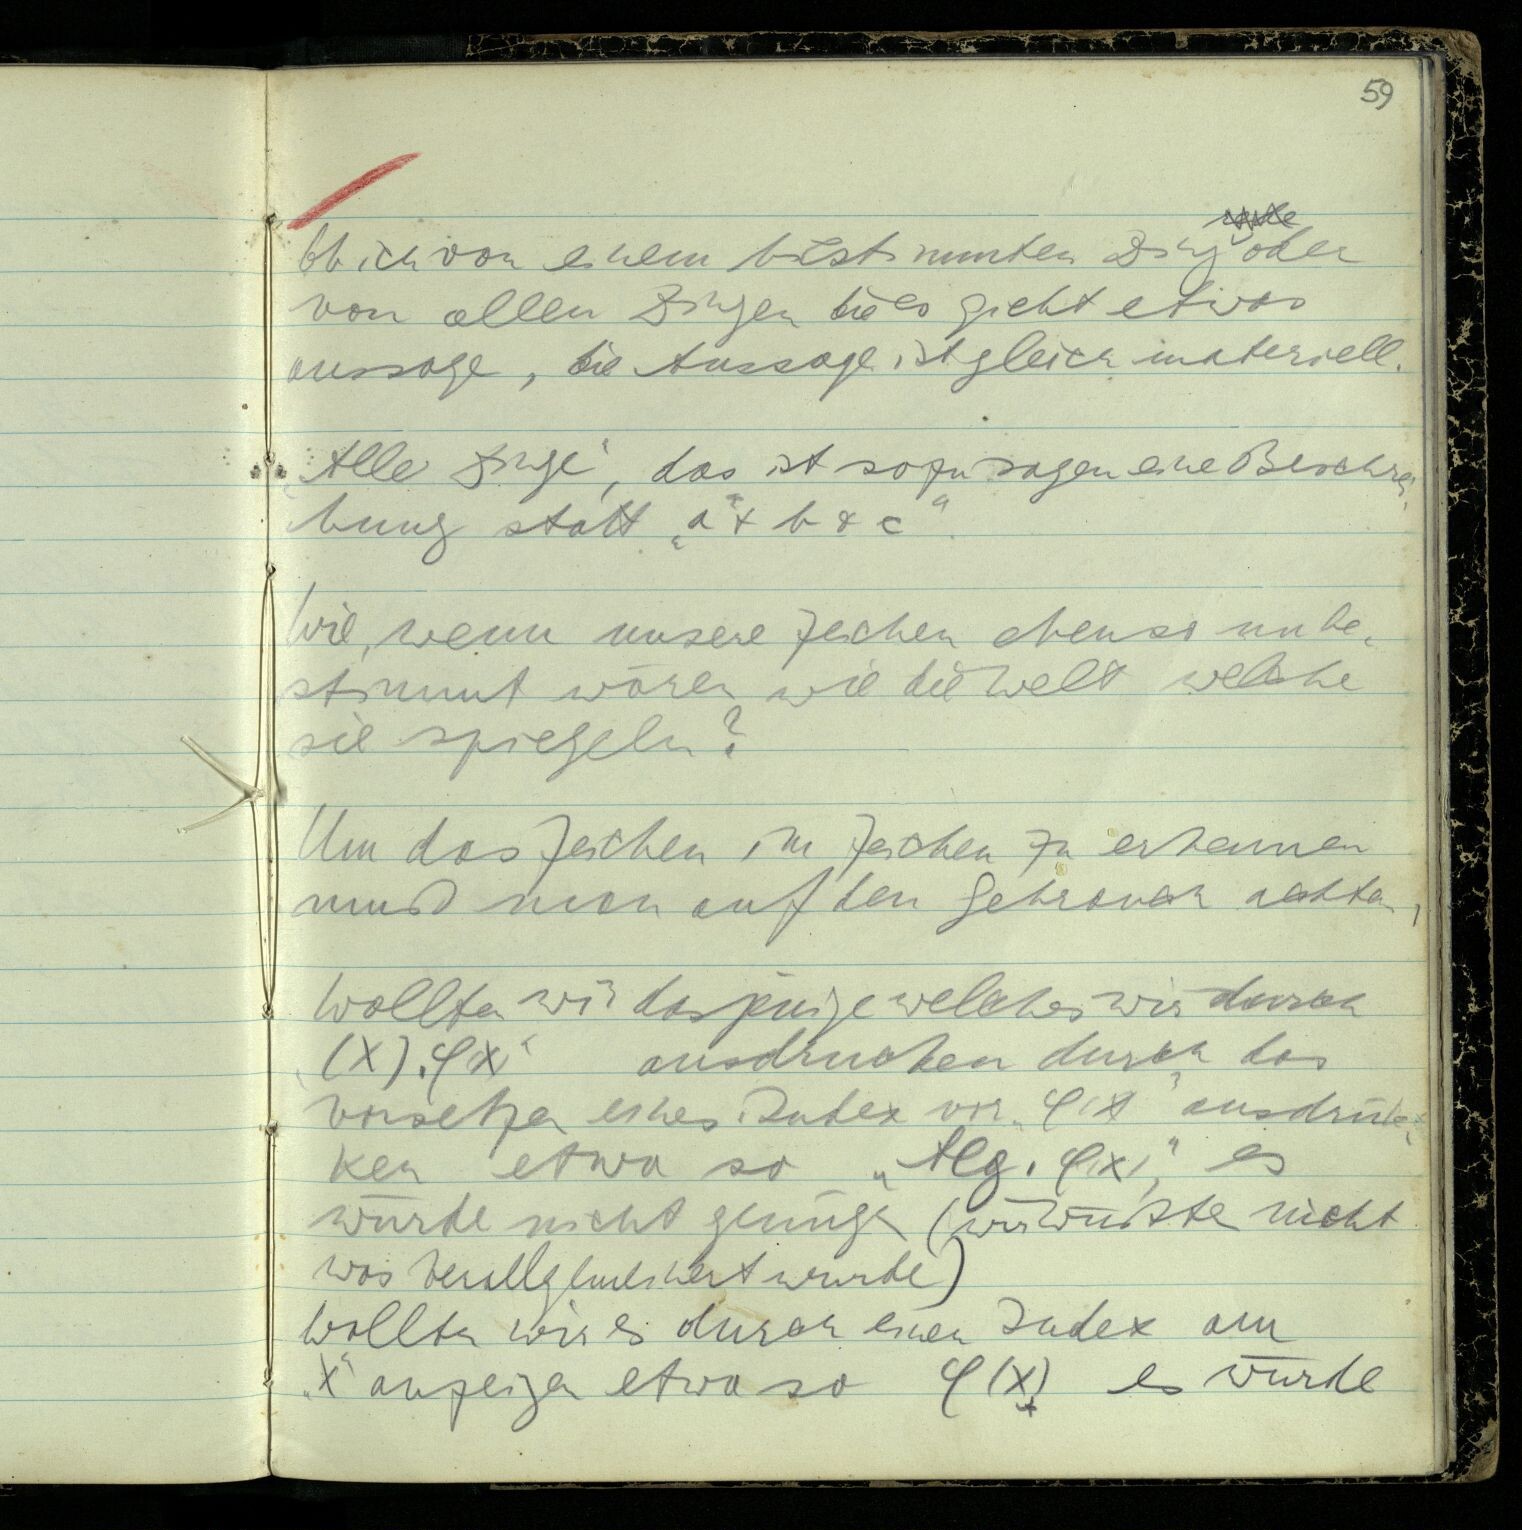 59
Ob ich von einem bestimmten Ding oder
von allen Dingen die es giebt etwas
aussage, die Aussage ist gleich materiell.
„Alle Dinge“, das ist sozusagen eine Beschrei-
bung statt „a & b & c“.
Wie, wenn unsere Zeichen ebenso unbe-
stimmt wären wie die Welt welche
sie spiegeln?
Um das Zeichen im Zeichen zu erkennen
muß man auf den Gebrauch achten,
Wollten wir dasjenige welches wir durch
„(x).φx“ ausdrucken durch das
Vorsetzen eines Index vor „φx“ ausdrük-
ken etwa so „Alg. φ(x),“ es
würde nicht genügen (wir wüßten nicht
was verallgemeinert wurde)
Wollten wir es durch einen Index am
„x“ anzeigen etwa so φ(x) es würde